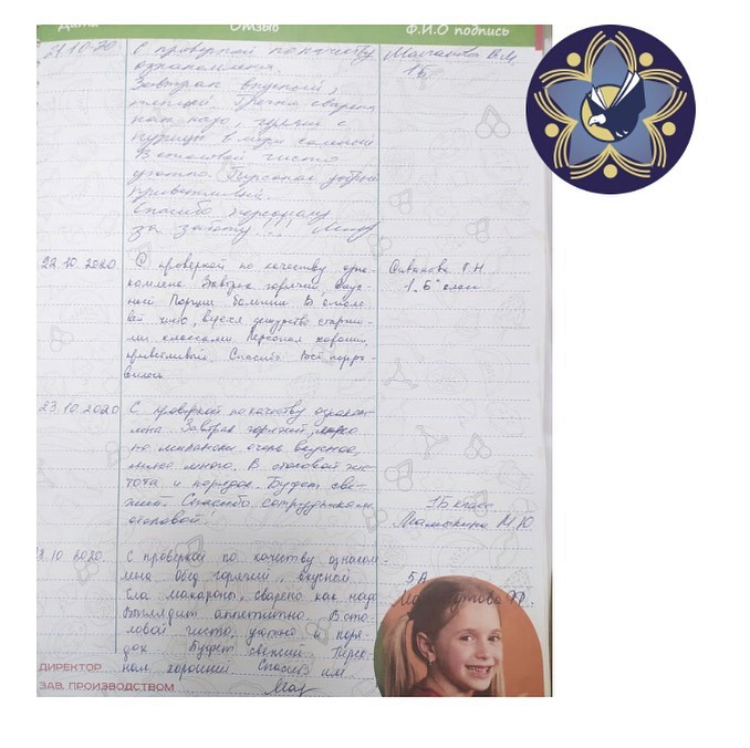 Дата Отзыв Ф.И.О подпись
21.10.20 С проверкой по качеству
ознакомлена.
Завтрак вкусный,
гречка сварена
как надо, горячая с
курицей
В столовой чисто
уютно. Персонал добрый
приветливый.
Спасибо персоналу
за заботу!!!
1Б
22.10.2020 С проверкой по качеству озна-
комлена. Завтрак горячий, вкус-
ный. Порции большие. В столо-
вой чисто, ведется дежурство старши-
ми классами. Персонал хороший,
приветливый. Спасибо. Всё понра-
вилось
Г.Н
1 "Б" класс
23.10.2020 С проверкой по качеству ознаком-
лена. Завтрак горячий, мясо
по-микански очень вкусное,
мяса много. В столовой чис-
тота и порядок. Буфет све-
жий. Спасибо сотрудникам
столовой!
1Б класс
Мамыкина М.Ю
.10 2020. С проверкой по качеству ознаком-
лена Обед горячий, вкусный.
Ела макароны, сварено как надо
Выглядит аппетитно. В сто-
ловой чисто, уютно и поря-
док Буфет свежий. Персо-
нал хороший Спасибо им.
5А
ДИРЕКТОР
ЗАВ. ПРОИЗВОДСТВОМ